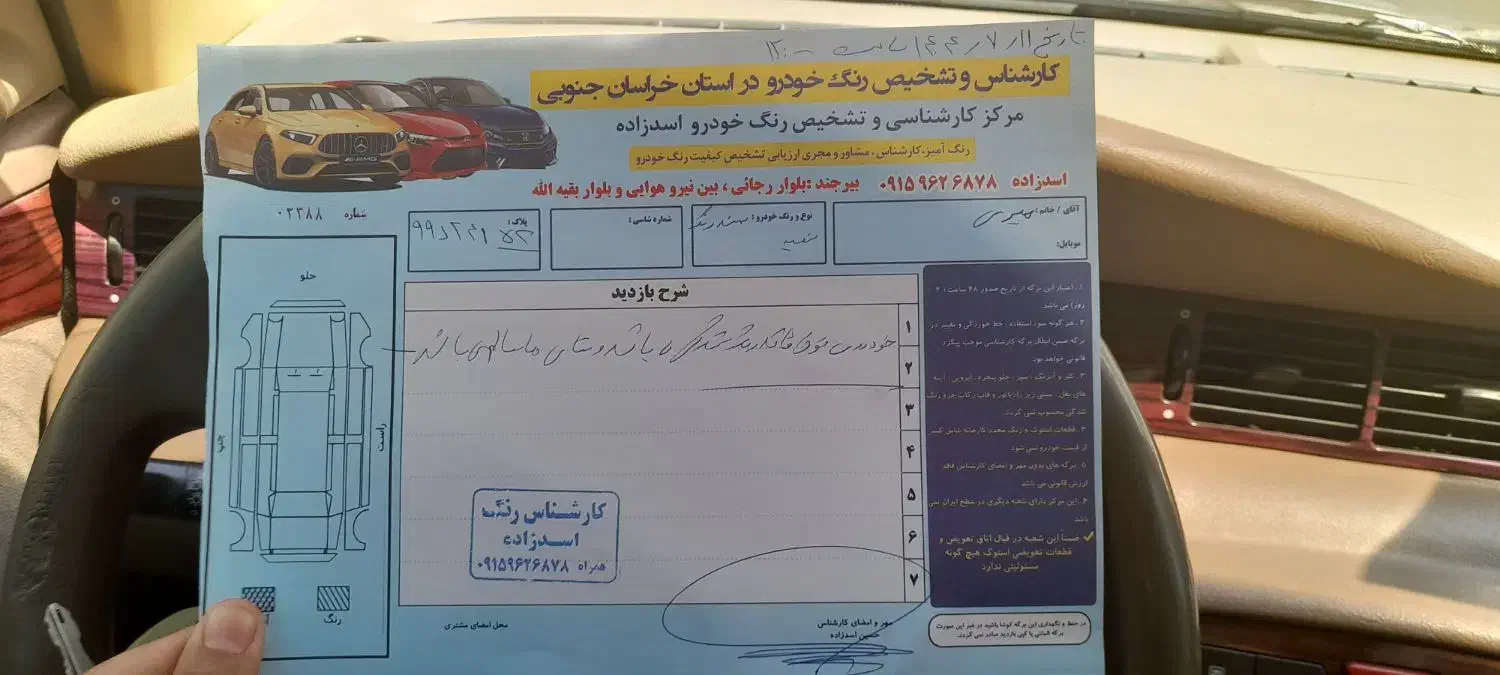 تاریخ ۱۱ر۷ر۱۴۰۴ ساعت ۱۲:۰۰
کارشناس و تشخیص رنگ خودرو در استان خراسان جنوبی
مرکز کارشناسی و تشخیص رنگ خودرو اسدزاده
رنگ آمیز، کارشناس، مشاور و مجری ارزیابی تشخیص کیفیت رنگ خودرو
اسدزاده ۰۹۱۵۹۶۲۶۸۷۸ بیرجند: بلوار رجائی، بین نیرو هوایی و بلوار بقیه الله
شماره ۰۲۳۸۸
آقای / خانم:
موبایل:
نوع و رنگ خودرو: سمند رنگ
سفید
شماره شاسی:
پلاک:
شرح بازدید
۱
خودروی فوق فاقد رنگ شدگی می باشد و ستای ها سالم می باشد
۲
۳
۴
۵
۶
۷
جلو
چپ
راست
رنگ
کارشناس رنگ
اسدزاده
همراه ۰۹۱۵۹۶۲۶۸۷۸
محل امضای مشتری
مهر و امضای کارشناس
حسین اسدزاده
۱. اعتبار این برگه از تاریخ صدور ۴۸ ساعت (۲
روز) می باشد
۲. هر گونه سوء استفاده، خط خوردگی و تغییر در
برگه ضمن ابطال برگه کارشناسی موجب پیگرد
قانونی خواهد بود
۳. گلر و آبرنگ، سپر، جلو پنجره، ابرویی، آینه
های بغل، سینی زیر رادیاتور و قاب رکاب جزو رنگ
شدگی محسوب نمی گردد.
۴. قطعات استوک و رنگ مجدد کارخانه شامل کسر
از قیمت خودرو نمی شود
۵. برگه های بدون مهر و امضای کارشناس فاقد
ارزش قانونی می باشد
۶. این مرکز دارای شعبه دیگری در سطح ایران نمی
باشد
✔ ضمناً این شعبه در قبال اتاق تعویض و
قطعات تعویضی استوک هیچ گونه
مسئولیتی ندارد
در حفظ و نگهداری این برگه کوشا باشید در غیر این صورت
برگه المثنی یا کپی بازدید صادر نمی گردد.